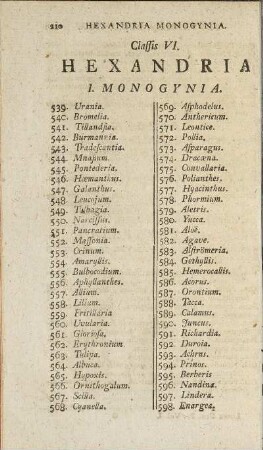 210 HEXANDRIA MONOGYNIA.
Classis VI.
HEXANDRIA
I. MONOGYNIA.
539. Urania.
540. Bromelia.
541. Tillandsia.
542. Burmannia.
543. Tradescantia.
544. Mnasium.
545. Pontederia.
546. Hæmantius.
547. Galanthus.
548. Leucojum.
549. Tulbagia.
550. Narcissus.
551. Pancratium.
552. Massonia.
553. Crinum.
554. Amaryllis.
555. Bulbocodium.
556. Aphyllanthes.
557. Allium.
558. Lilium.
559. Fritillaria
560. Uvularia.
561. Gloriosa,
562. Erythronium
563. Tulipa.
564. Albuca.
565. Hypoxis.
566. Ornithogalum.
567. Scilla.
568. Cyanella.
569. Asphodelus.
570. Anthericum.
571. Leontice.
572. Pollia.
573. Asparagus.
574. Dracæna.
575. Convallaria.
576. Polianthes.
577. Hyacinthus.
578. Phormium.
579. Aletris.
580. Yucca.
581. Aloë.
582. Agave.
583. Alstrômeria.
584. Gethyllis.
585. Hemerocallis.
586. Acorus.
587. Orontium.
588. Tacca.
589. Calamus.
590. Juncus.
591. Richardia.
592. Duroia.
593. Achras.
594. Prinos.
595. Berberis
596. Nandina.
597. Lindera.
598. Enargea.